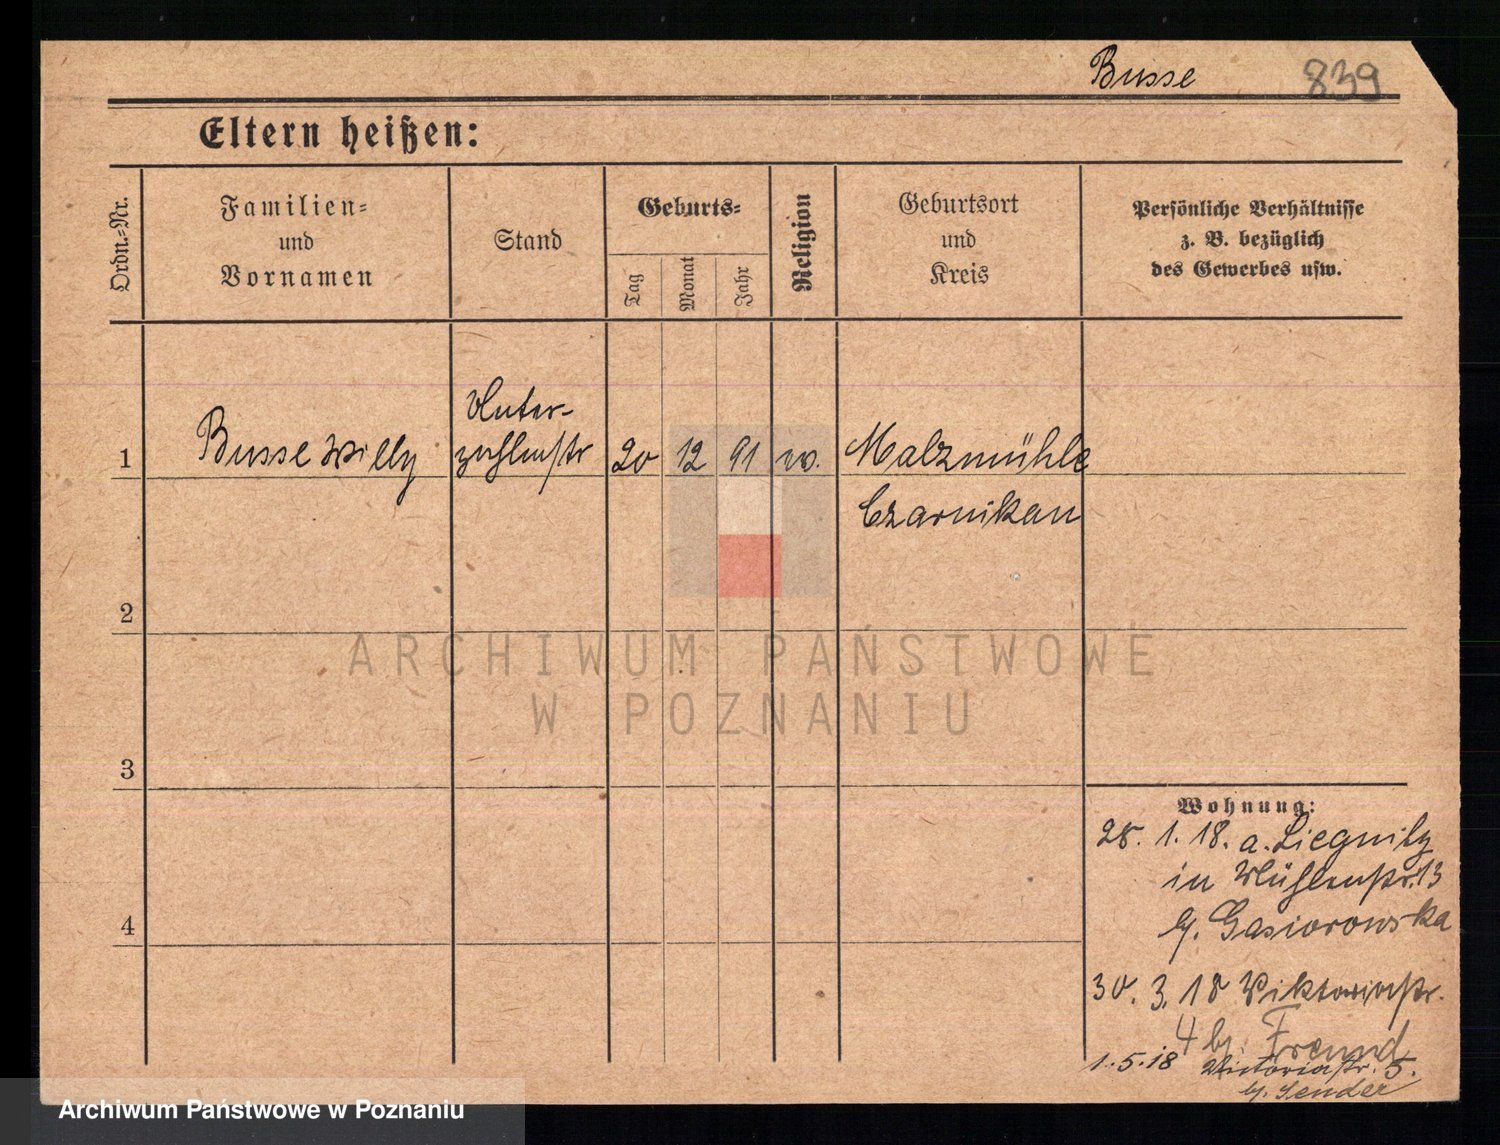 Busse 839
Eltern heißen:
Ordn.=Nr.
Familien=
und
Vornamen
Stand
Geburts=
Tag
Monat
Jahr
Religion
Geburtsort
und
Kreis
Persönliche Verhältnisse
z. B. bezüglich
des Gewerbes usw.
1 Busse Willy
Unter-
zahlmstr
20 12 91
Malzmühle
Czarnikau
2
3
4
Wohnung:
28. 1. 18. a. Liegnitz
in Mühlenstr. 13
b/. Gasiorowska
30. 3. 18 Viktoriastr.
4 b/. Freund
1.5.18 Victoriastr. 5.
b/. Sender
ARCHIWUM PAŃSTWOWE
W POZNANIU
Archiwum Państwowe w Poznaniu